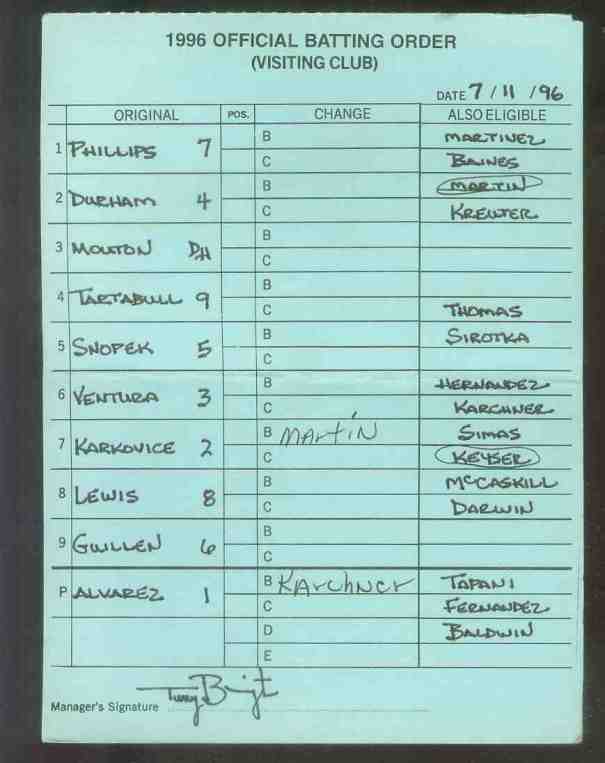 1996 OFFICIAL BATTING ORDER
(VISITING CLUB)
DATE 7/11/96
ORIGINAL POS. CHANGE ALSO ELIGIBLE
1 PHILLIPS 7 B MARTINEZ
C BAINES
2 DURHAM 4 B MARTIN
C KREUTER
3 MOUTON DH B
C
4 TARTABULL 9 B
C THOMAS
5 SNOPEK 5 B SIROTKA
C
6 VENTURA 3 B HERNANDEZ
C KARCHNER
7 KARKOVICE 2 B Martin SIMAS
C KEYSER
8 LEWIS 8 B McCASKILL
C DARWIN
9 GUILLEN 6 B
C
P ALVAREZ 1 B Karchner TAPANI
C FERNANDEZ
D BALDWIN
E
Manager's Signature Terry Bevington